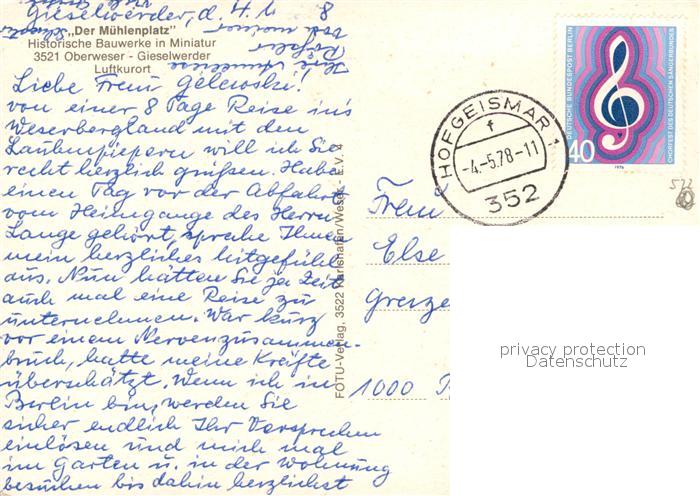 Gieselwerder, d. 4.
"Der Mühlenplatz"
Historische Bauwerke in Miniatur
3521 Oberweser - Gieselwerder
Luftkurort
Liebe Frau Gelewski!
von einer 8 Tage Reise ins
Weserbergland mit den
Laubenpiepern will ich Sie
recht herzlich grüßen. Habe
einen Tag vor der Abfahrt
vom Heimgange des Herrn
Lange gehört, spreche Ihnen
mein herzliches Mitgefühl
aus. Nun hätten Sie ja Zeit
auch mal eine Reise zu
unternehmen. War kurz
vor einem Nervenzusammen-
bruch, hatte meine Kräfte
überschätzt. Wenn ich in
Berlin bin, werden Sie
sicher endlich Ihr Versprechen
einlösen und mich mal
im Garten u. in der Wohnung
besuchen bis dahin herzlichst
FOTU-Verlag, 3522 Karlshafen/Weser - E.V. 4
HOFGEISMAR 1
f
-4.-5.78-11
352
DEUTSCHE BUNDESPOST BERLIN
CHORFEST DES DEUTSCHEN SÄNGERBUNDES
40
1976
Frau
Else
Grenze
1000
privacy protection
Datenschutz